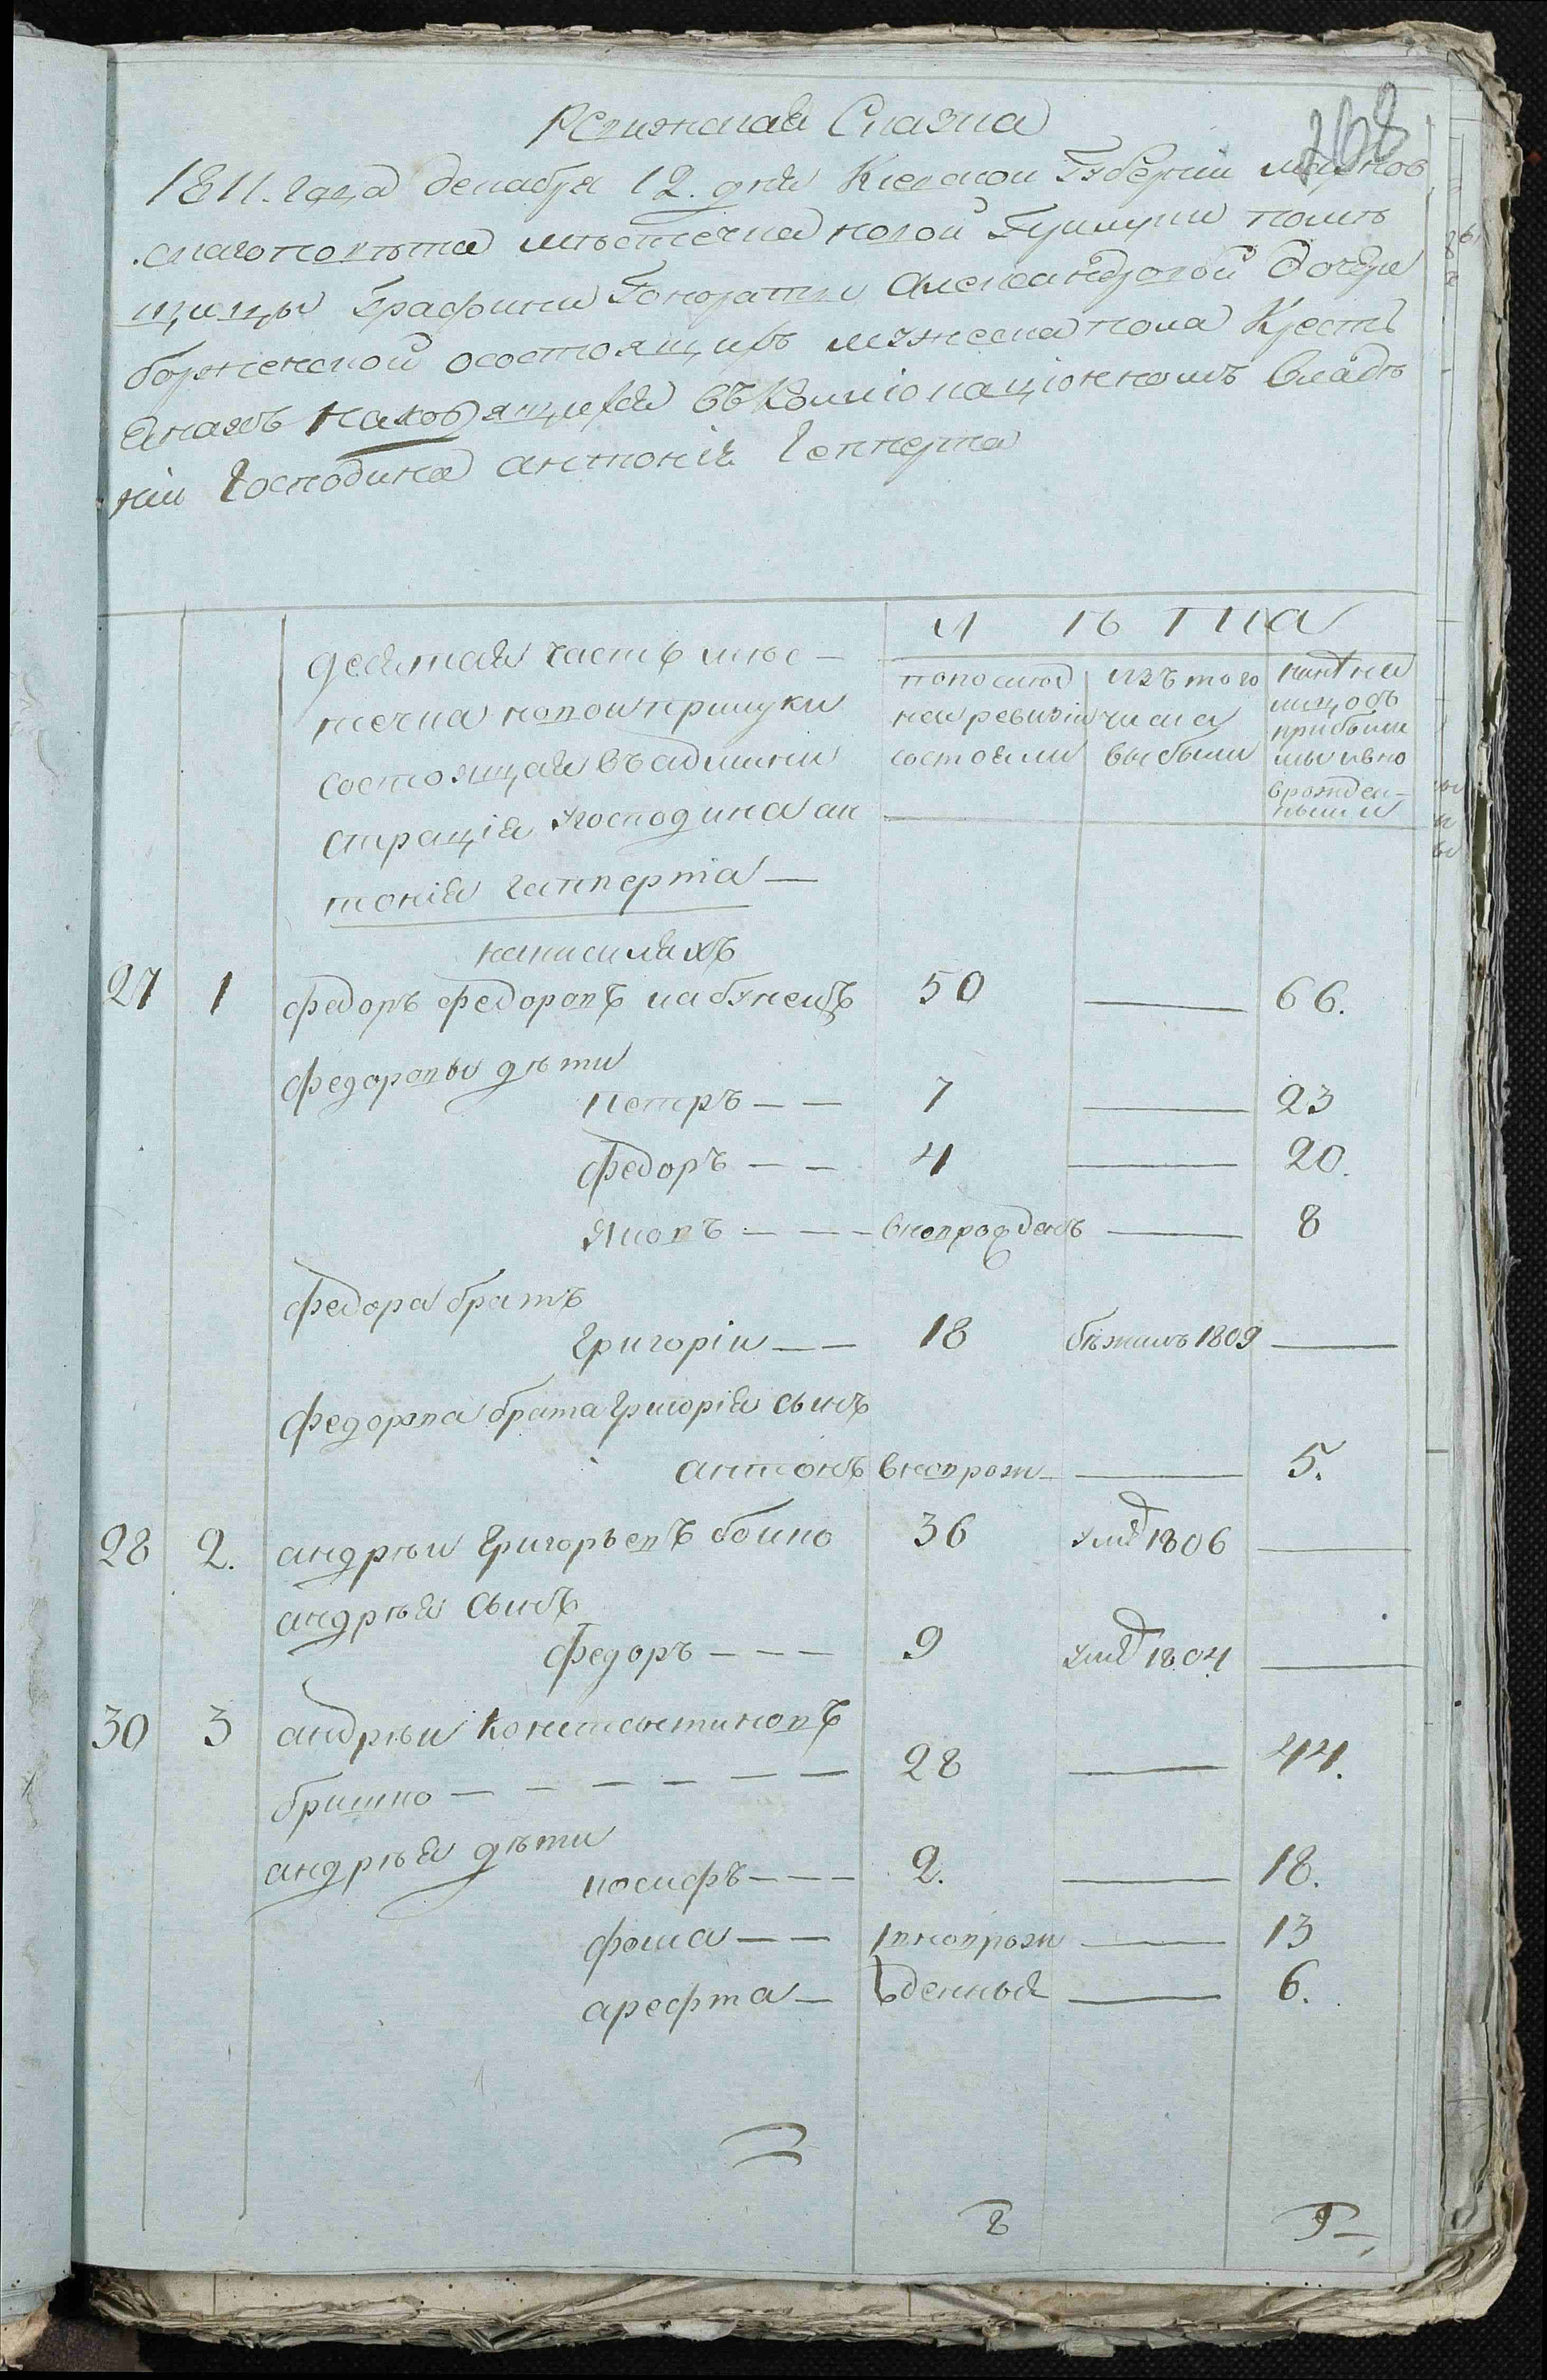 Ревижская Сказка
268
1811. года декабря 12. дня Киевской Губернии махнов
скаго повѣта мѣстечка новой Прилуки помѣ
щицы Графини Гоноратты Александровой дочери
борженской осостоящихъ мужеска пола Кресть
янахъ находящихся въ Комміонаціонномъ владѣ
ніи Господина антонія Гепперта
десятая часть мѣс-
течка новой прилуки
состоящая въ админи
страціи Господина ан
тонія гепперта —
написи ляхъ
Л ѣ т н а
попослѣд
ней ревизіи
состояли
изъ того
числа
выбыли
ныне на
лицо съ
прибылы
мы ивно
врожден-
ными
27 1 федоръ федоровъ кабунецъ 50 — 66.
федоровы дѣти
петръ — — 7 — 23
федоръ — — 4 — 20.
яковъ — — вновроджень — 8
федора братъ
григоріи — — 18 бѣжалъ 1809 —
федорова брата григорія сынъ
антонъ вноврож — 5.
28 2. андрѣи григорьевъ боико 36 умр 1806 —
андрѣя сынъ
федоръ — — — 9 умр 1804 —
30 3 андрѣи константиновъ
бришко — — — — — — 28 — 44.
андрѣя дѣти
иосифъ — — — 2. — 18.
фома — — вноврож — 13
арефта — денныя — 6.